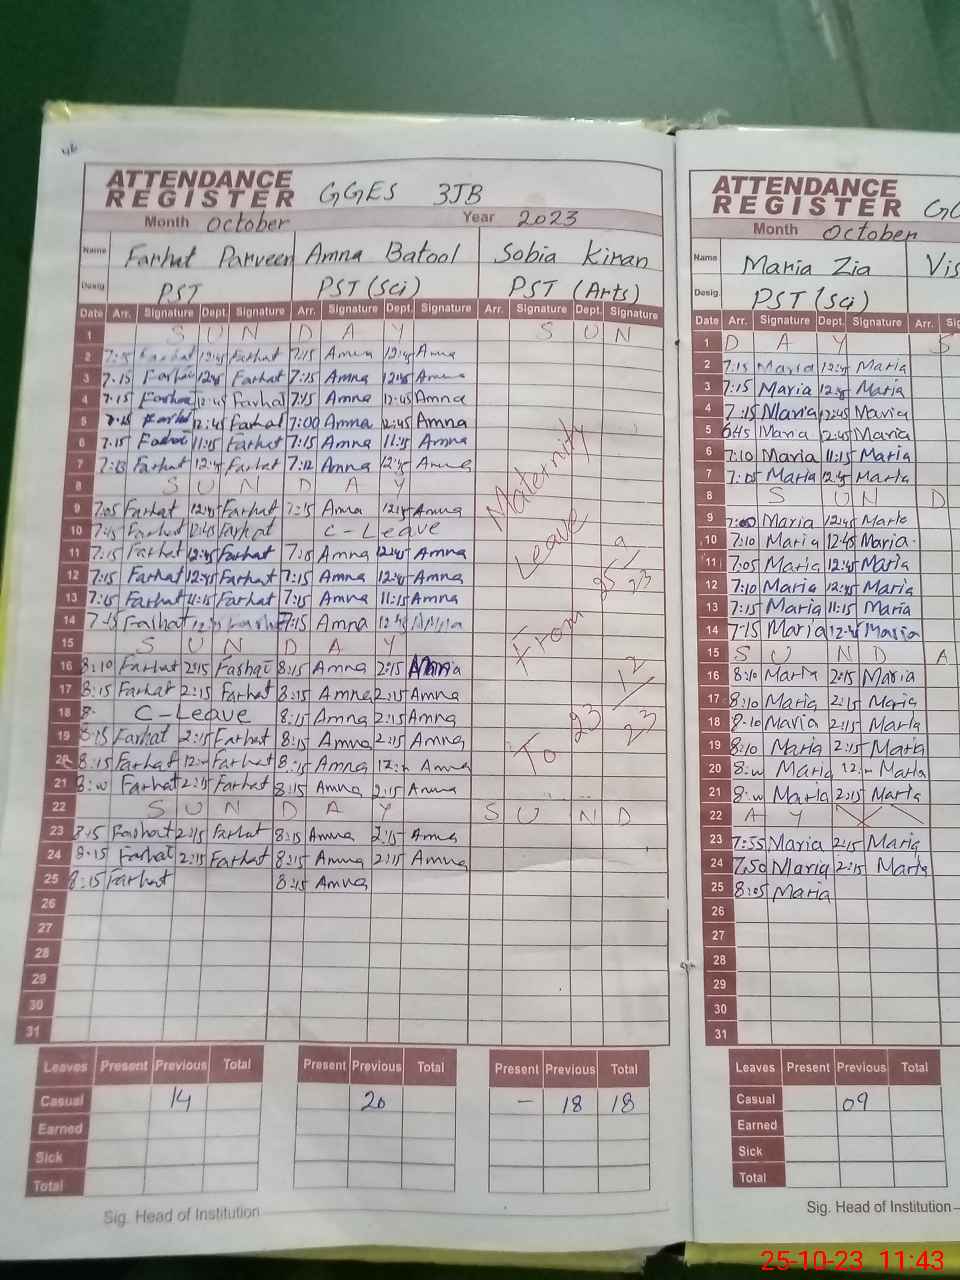 ATTENDANCE REGISTER GGES 3JB
Month October Year 2023
Name Farhat Parveen Amna Batool Sobia Kiran
Desig. PST PST (Sci) PST (Arts)
Date Arr. Signature Dept. Signature Arr. Signature Dept. Signature Arr. Signature Dept. Signature
1 S U N D A Y S U N
2 Farhat 12:45 Farhat 7:15 Amna 12:45 Amna
3 7:15 Farhat 12:45 Farhat 7:15 Amna 12:45 Amna
4 7:15 Farhat 12:45 Farhat 7:15 Amna 12:45 Amna
5 7:15 Farhat 12:45 Farhat 7:00 Amna 12:45 Amna
6 7:15 Farhat 11:15 Farhat 7:15 Amna 11:15 Amna
7 7:13 Farhat 12:45 Farhat 7:12 Amna 12:45 Amna
8 S U N D A Y
9 7:05 Farhat 12:45 Farhat 7:15 Amna 12:45 Amna
10 7:45 Farhat 12:45 Farhat C-Leave
11 7:15 Farhat 12:45 Farhat 7:15 Amna 12:45 Amna
12 7:15 Farhat 12:45 Farhat 7:15 Amna 12:45 Amna
13 7:15 Farhat 11:15 Farhat 7:15 Amna 11:15 Amna
14 7:15 Farhat Farhat 7:15 Amna 12:45 Amna
15 S U N D A Y
16 8:10 Farhat 2:15 Farhat 8:15 Amna 2:15 Amna
17 8:15 Farhat 2:15 Farhat 8:15 Amna 2:15 Amna
18 8: C-Leave 8:15 Amna 2:15 Amna
19 8:15 Farhat 2:15 Farhat 8:15 Amna 2:15 Amna
20 8:15 Farhat Farhat 8:15 Amna Amna
21 Farhat 2:15 Farhat 8:15 Amna 2:15 Amna
22 S U N D A Y S U N D
23 8:15 Farhat 2:15 Farhat 8:15 Amna 2:15 Amna
24 8:15 Farhat 2:15 Farhat 8:15 Amna 2:15 Amna
25 8:15 Farhat 8:15 Amna
26
27
28
29
30
31
Maternity
Leave
From 25 9/23
To 23 12/23
Leaves Present Previous Total Present Previous Total Present Previous Total
Casual 14 20 - 18 18
Earned
Sick
Total
Sig. Head of Institution
ATTENDANCE REGISTER
Month October
Name Maria Zia
Desig. PST (Sci)
Date Arr. Signature Dept. Signature Arr.
1 D A Y S
2 7:15 Maria 12:45 Maria
3 7:15 Maria 12:45 Maria
4 7:15 Maria 12:45 Maria
5 6:45 Maria 12:45 Maria
6 7:10 Maria 11:15 Maria
7 7:05 Maria 12:45 Maria
8 S U N D
9 7:00 Maria 12:45 Maria
10 7:10 Maria 12:45 Maria
11 7:05 Maria 12:45 Maria
12 7:10 Maria 12:45 Maria
13 7:15 Maria 11:15 Maria
14 7:15 Maria 12:45 Maria
15 S U N D A
16 8:10 Maria 2:15 Maria
17 8:10 Maria 2:15 Maria
18 8:10 Maria 2:15 Maria
19 8:10 Maria 2:15 Maria
20 Maria Maria
21 Maria 2:15 Maria
22 A Y
23 7:55 Maria 2:15 Maria
24 7:50 Maria 2:15 Maria
25 8:05 Maria
26
27
28
29
30
31
Leaves Present Previous Total
Casual 09
Earned
Sick
Total
Sig. Head of Institution
25-10-23 11:43